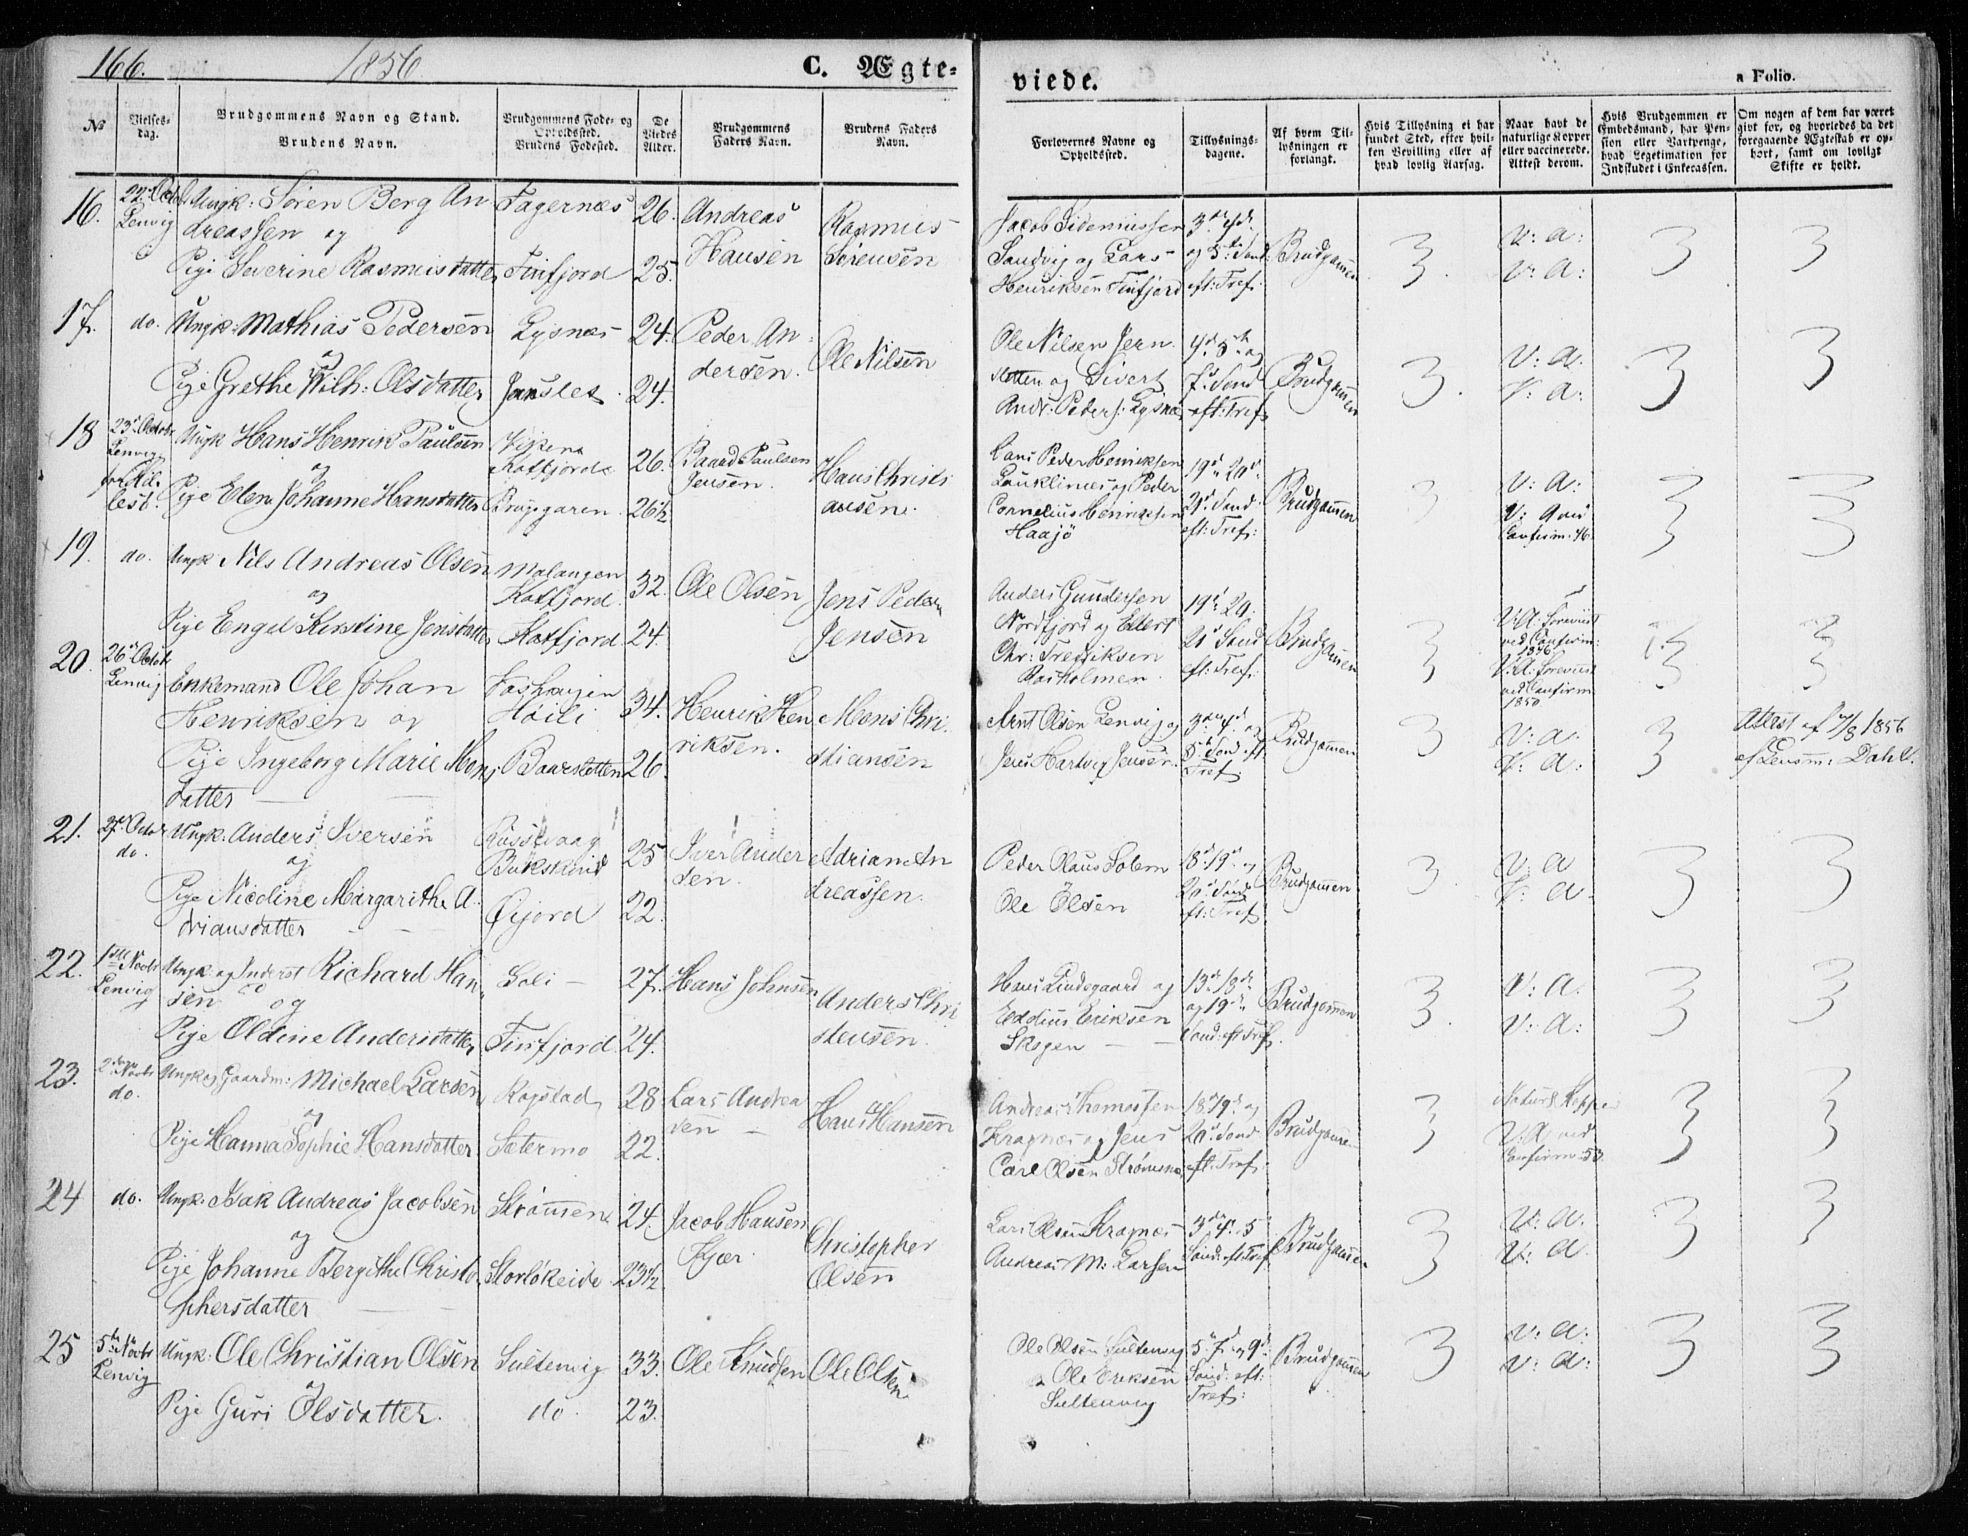 166. 1856 C. Ægte-
viede. a Folio.
№
Vielses-
dag.
Brudgommens Navn og Stand.
Brudens Navn.
Brudgommens Føde- og
Opholdssted.
Brudens Fødested.
De
Viedes
Alder.
Brudgommens
Faders Navn.
Brudens Faders
Navn.
Forlovernes Navne og
Opholdssted.
Tillysnings-
dagene.
Af hvem Til-
lysningen er
forlangt.
Hvis Tillysning ei har
fundet Sted, efter hvil-
ken Bevilling eller af
hvad lovlig Aarsag.
Naar havt de
naturlige Kopper
eller vaccinerede.
Attest derom.
Hvis Brudgommen er
Embedsmand, har Pen-
sion eller Vartpenge,
hvad Legetimation for
Indskudet i Enkecassen.
Om nogen af dem har været
givt før, og hvorledes da det
foregaaende Ægteskab er op-
hørt, samt om lovligt
Skifte er holdt.
16. 22 Octbr Ungk: Søren Berg An Fagernæs 26. Andreas Rasmus
Lenvig dreassen og Hansen Sørensen
Pige Severine Rasmusdatter Finfjord 25.
Jacob Sideniussen 3die 4de
Sandvig og Lars og 5te Sønd: Brudgommen 3. V: a:
Henriksen Finfjord eft: Tref: V: A: 3 3
17. do. Ungk: Mathias Pedersen Lysnæs 24. Peder An
og dersen. Ole Nilsen
Pige Grethe Wilh: Olsdatter Jansles 24.
Ole Nilsen Jern 4de 5te og
sletten og Sivert 7de Sønd Brudgommen 3. V: A: 3 3
Andr: Peders: Lysnæs eft: Tref V: A:
18 23de Octobr Ungk Hans Henrik Paulsen 26. Baard Paulsen Hans Christi
Lenvig og Kattfjord Jensen. ansen.
Pige Elen Johanne Hansdatter Bruggaren 26½
Lars Peder Henriksen 19de 20de
Lanklinæs og Peder 21de Sønd. Brudgommen 3 V: A:
Cornelius Henriksen eft: Tref: V: A
Haajø Confirm: 46. 3 3
19. do. Ungk Nils Andreas Olsen Malangen 32. Ole Olsen Jens Peder
og Katfjord. Jensen
Pige Engel Kirstine Jensdatter Katfjord 24.
Anders Gundersen 19de 20.
Nordfjord og Ellert 21de Sønd Brudgommen 3 V: A: foreviist
Chr: Fredriksen eft: Tref. ved Confirm:
Rosholmen. V: A: foreviist
ved Confirm
1850 3 3
20. 26de Octbr Enkemand Ole Johan 34. Henrik Hen Mons Chri
Lenvig Henriksen og Høili riksen. stiansen
Pige Ingeborg Marie Mons Baarsletten 26.
datter
Arnt Olsen Lenvig og 3die 4de og Brudgommen 3 V: a: 3 Attest af 7/8 1856
Jens Hartvig Jensen. 5te Sønd. eft: V: A: af Lensm: Dahl.
Tref
21. 27de Octbr Ungk: Anders Iversen Rossevaag 25 Iver Ander Adrian An
do. og Bukskind sen. dreassen.
Pige Nicoline Margarithe A- Øijord 22.
driansdatter
Peder Olaus Solem 18de 19de og Brudgommen 3. V: a 3 3
Ole Olsen 20de Sønd V: a
eft: Tref
22. 1ste Novbr Ungk og Inderst Richard Han Soli 27. Hans Johnsen Anders Chri
Lenvig sen og stensen.
Pige Oldine Andersdatter Finfjord 24.
Hans Lindegaard og 13de 18de
Eddius Eriksen og 19de Brudgommen 3. V: A. 3 3
Skogen Sønd: eft Tref. V: A:
23. 2den Novbr Ungk og Gaardm: Michael Larsen Rogstad 28 Lars Andrea Hans Hansen
do. og sen
Pige Hanna Sophie Hansdatter Setermo 22.
Andreas Thomassen 18de 19de og Naturl Kopper
Kragnæs og Jens 20de Sønd Brudgommen 3 V: A ved 3 3
Carl Olsen Strømsnæs eft: Tref: Confirm: 53
24 do. Ungk: Isak Andreas Jacobsen Strømmen 24. Jacob Hansen Christopher
og Kjær. Olsen
Pige Johanne Bergithe Christo Storløkeide 23½
phersdatter
Lars Olsen Kragnæs 3die 4de 5 Brudgommen 3 V: a. 3 3
Andreas M: Larsen Sønd: eft Tref V: a
25 5te Novbr Ungk: Ole Christian Olsen Sultenvig 33. Ole Knudsen Ole Olsen
Lenvig og
Pige Guri Olsdatter. do. 23.
Ole Olsen Sultenvig 5te 7de og 9de Brudgommen 3 V: a: 3 3
Ole Eriksen Sønd: eft: V: a:
Sultenvig Tref: